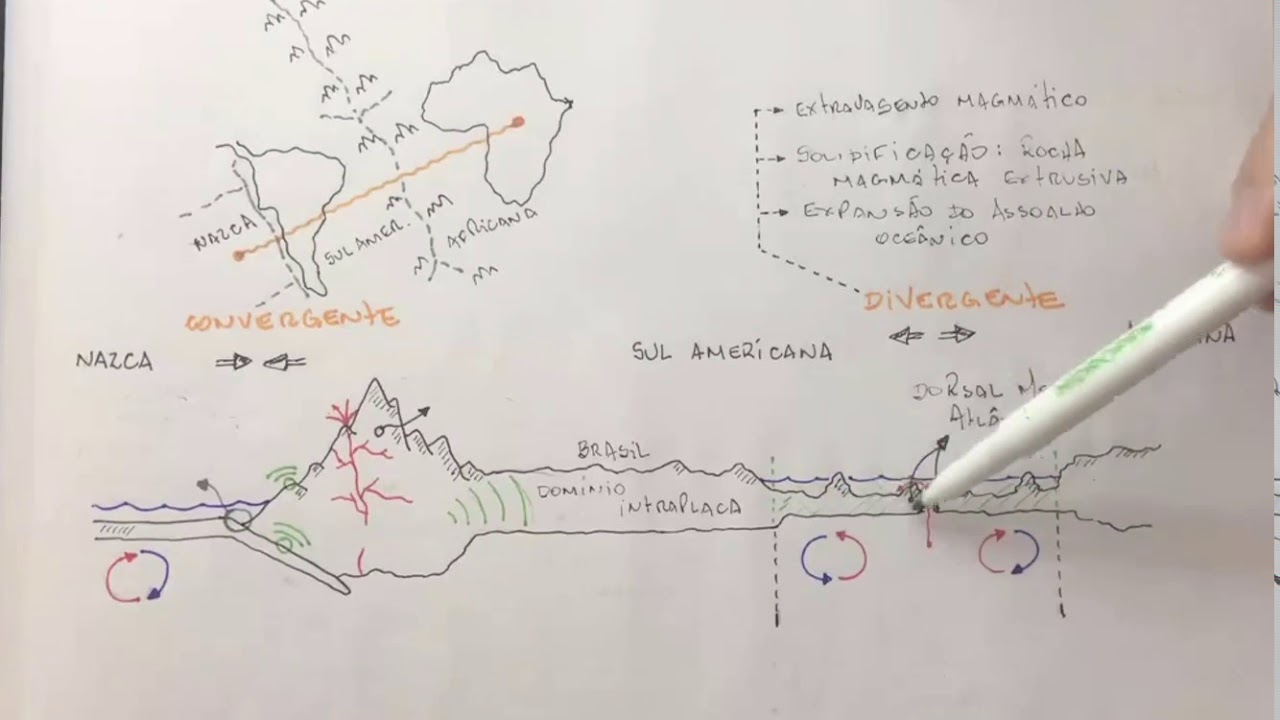 EXTRAVASENTO MAGMÁTICO
SOLIDIFICAÇÃO: ROCHA
MAGMÁTICA EXTRUSIVA
EXPANSÃO DO ASSOALHO
OCEÂNICO
NAZCA
SUL AMER.
AFRICANA
CONVERGENTE
DIVERGENTE
NAZCA
SUL AMERICANA
DORSAL
BRASIL
DOMÍNIO
INTRAPLACA